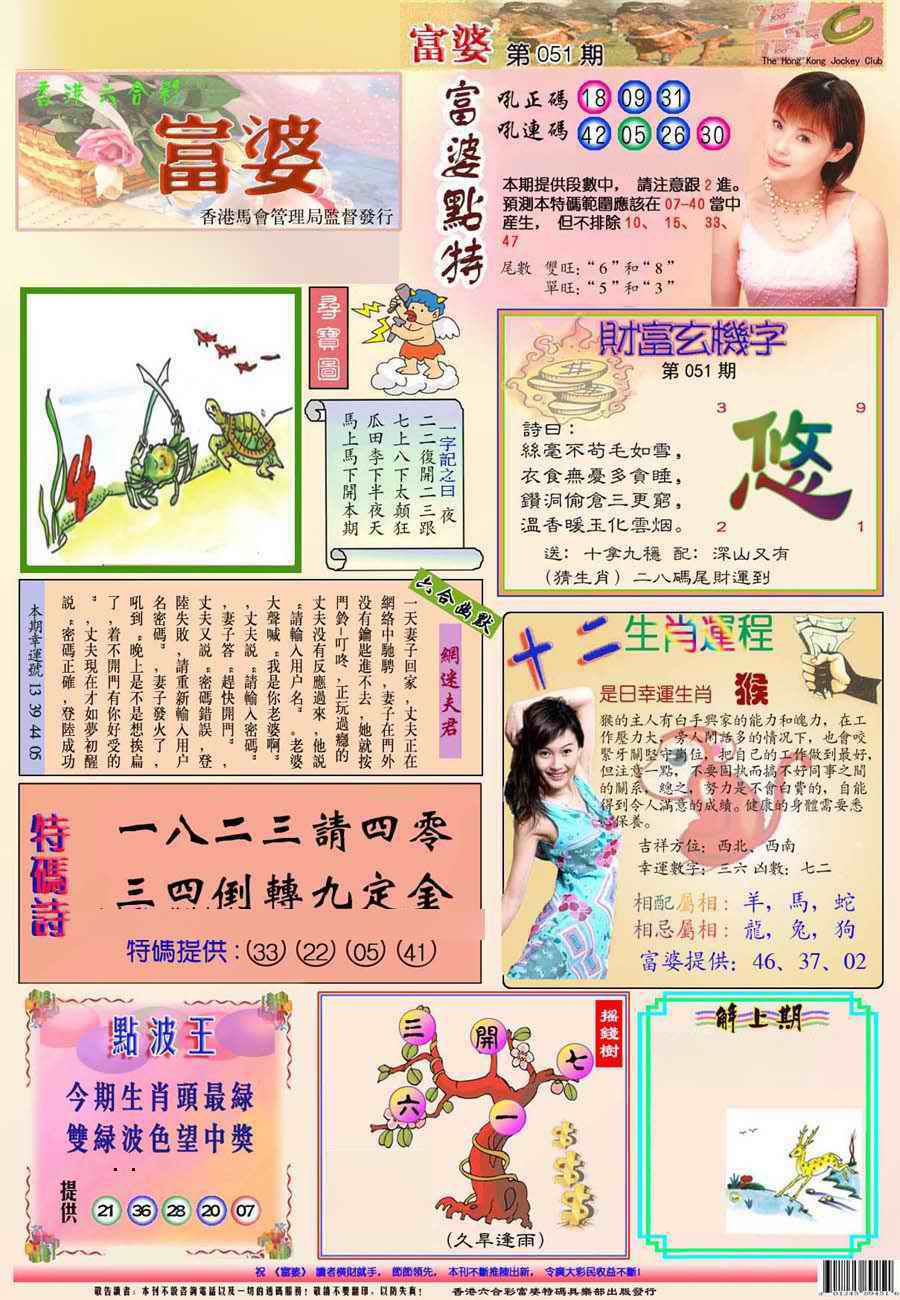 富婆 第 051 期
The Hong Kong Jockey Club
香港六合彩
富婆
香港馬會管理局監督發行
富婆點特
吼正碼 18 09 31
吼連碼 42 05 26 30
本期提供段數中， 請注意跟 2 進。
預測本特碼範圍應該在 07-40 當中
産生， 但不排除 10、 15、 33、
47
尾數 雙旺: “6” 和 “8”
單旺: “5” 和 “3”
尋寶圖
一字記之曰 夜
二二復開二三跟
七上八下太顛狂
瓜田李下半夜天
馬上馬下開本期
財富玄機字
第 051 期
詩曰:
絲毫不苟毛如雪，
衣食無憂多貪睡，
鑽洞偷倉三更窮，
溫香暖玉化雲烟。
3 9
悠
2 1
送: 十拿九穩 配: 深山又有
（猜生肖） 二八碼尾財運到
六合幽默
網迷夫君
一天妻子回家，丈夫正在
網絡中馳騁，妻子在門外
没有鑰匙進不去，她就按
門鈴-叮咚，正玩過癮的
丈夫没有反應過來，他説
“請輸入用户名。 老婆
大聲喊“我是你老婆啊”
，丈夫説“請輸入密碼”
，妻子答“趕快開門”，
丈夫又説“密碼錯誤，登
陸失敗，請重新輸入用户
名密碼。”，妻子發火了，
吼到“晚上是不是想挨扁
了，着不開門有你好受的
”，丈夫現在才如夢初醒
説“密碼正確，登陸成功
本期幸運號 13 39 44 05
十二生肖運程
是日幸運生肖 猴
猴的主人有白手興家的能力和魄力，在工
作壓力大，旁人閒話多的情况下，也會咬
緊牙關堅守崗位，把自己的工作做到最好，
但注意一點，不要固執而搞不好同事之間
的關系，總之，努力是不會白費的，自能
得到令人滿意的成績。健康的身體需要悉
保養。
吉祥方位: 西北、西南
幸運數字: 三六 凶數: 七二
相配屬相: 羊，馬，蛇
相忌屬相: 龍，兔，狗
富婆提供: 46、37、02
特碼詩
一八二三請四零
三四倒轉九定金
特碼提供: 33 22 05 41
點波王
今期生肖頭最緑
雙緑波色望中獎
提供 21 36 28 20 07
摇錢樹
三 開 七
六 一
（久旱逢雨）
解上期
祝 《富婆》 讀者横財就手， 節節領先， 本刊不斷推陳出新， 令廣大彩民收益不斷！
敬告讀者: 本刊不設咨詢電話以及一切的透碼服務！敬請不要翻印，以防失真！
香港六合彩富婆特碼俱樂部出版發行